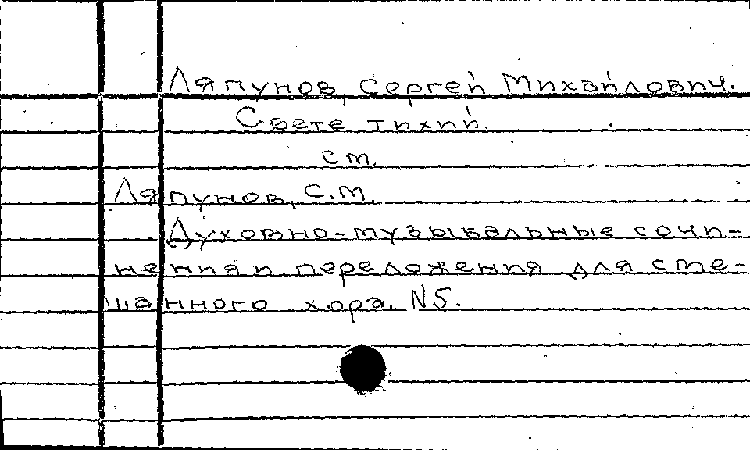 Ляпунов, Сергей Михайлович.
Свете тихий.
см.
Ляпунов, С.М.
Духовно-музыкальные сочи-
нения и переложения для сме-
шанного хора. N5.